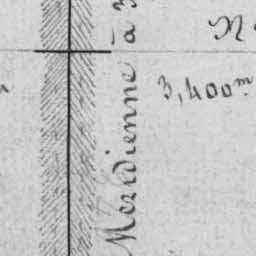 N
Méridienne à 3
3,400m.